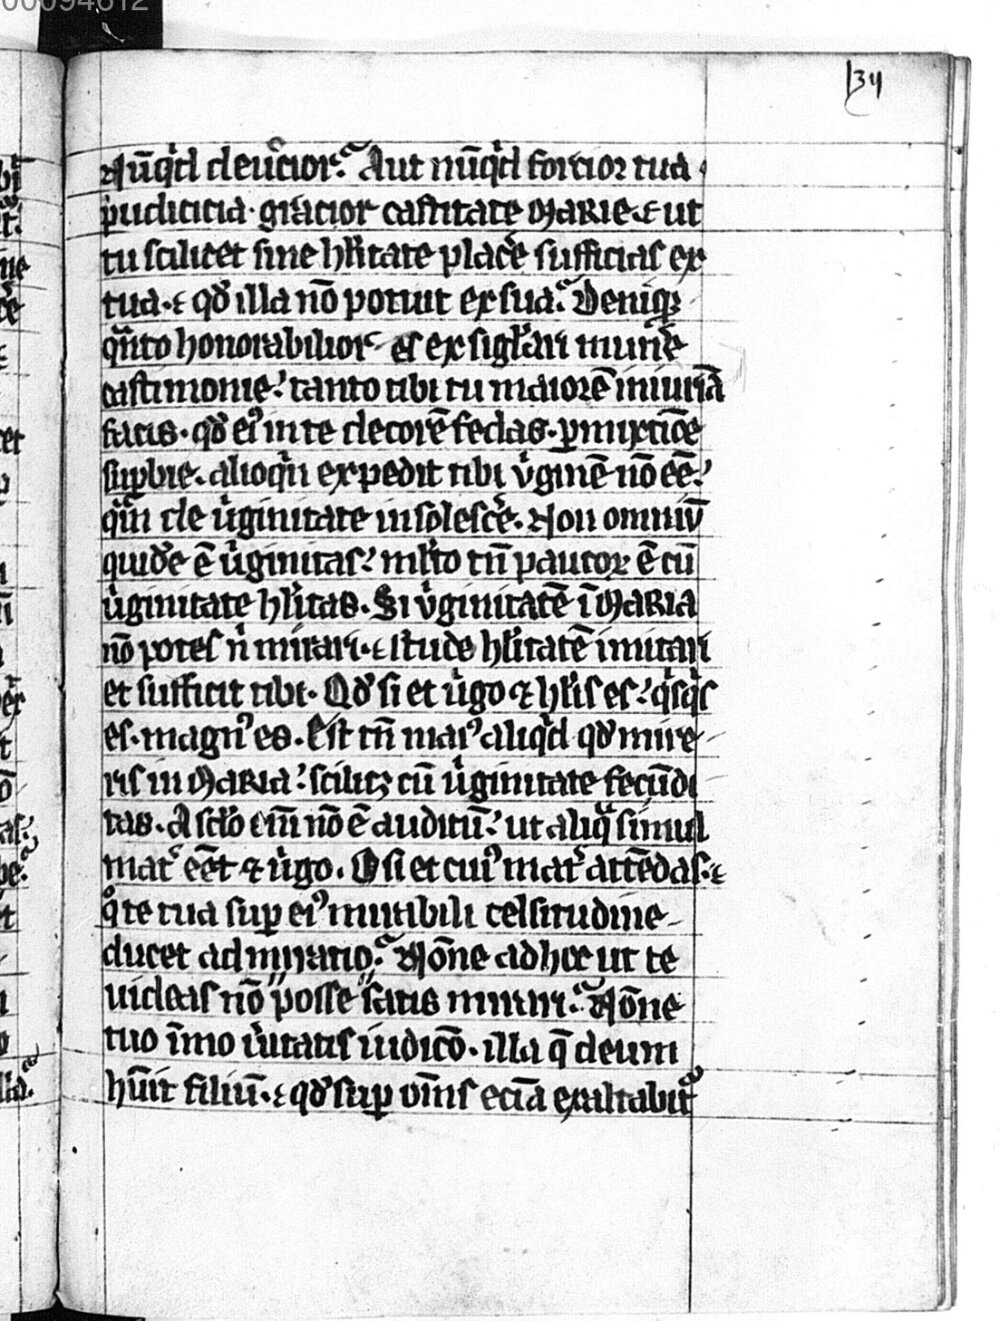 00094612
134
Nūqͥd deuͦcior? Aut nūqͥd forcior tua
pudicicia · gͣcior castitate MARIE · ⁊ ut
tu scilicet sine hūlitate placeͤ sufficias ex
tua · ⁊ qđ illa nō potuit ex sua? Deniqꝫ
qͣnto honorabilior es ex siglͣari muneͤ
castimonie? tanto tibi tu maiorē iniuriā
facis · qđ eiꝰ in te decorē fedas · ꝑmixtiōe
suꝑbie · alioqͥn expedit tibi vͥginē nō eē?
qͣm de uͥginitate insolesceͤ · Non omniū
quideͫ ē uͥginitas? mlto tn̄ paucoꝝ ē cū
uͥginitate hūlitas · Si vͥginitatē ī MARIA
nō potes nͥ mirari · ⁊ stude hūlitatē imitari
et sufficit tibi · Qđ si et uͥgo ⁊ hūlis es? qͥsqͥs
es · magnꝰ es · Est tn̄ maiꝰ aliqͥd qđ mire
ris in MARIA? scilicꝫ cū uͥginitate fecūdi
tas · A sclo eīm nō ē auditū? ut aliqͣ simul
mat͛ eēt ⁊ uͥgo · O si et cuiꝰ mat͛ attēdas · ⁊
qͦ te tua suꝑ eiꝰ mirabili celsitudine
ducet admiratio? Nōne adhoc ut te
uideas nō posse satis mirari? Nōne
tuo īmo uͥitatis iudicō · illa q̄ deum
hūit filiū · ⁊ qđ suꝑ om̄s eciā exaltabit᷑